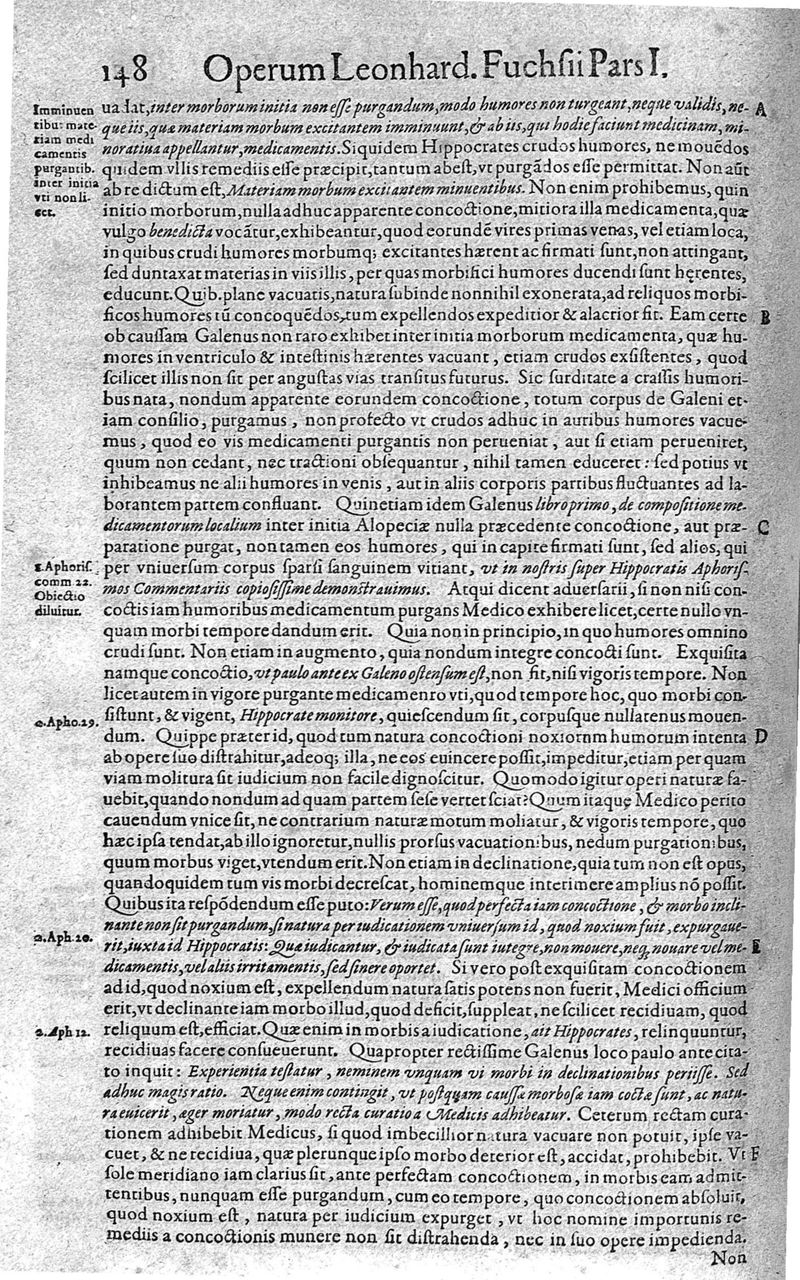 148 Operum Leonhard. Fuchsii Pars I.
Imminuen
tibus mate-
riam medi
camentis
purgantib.
inter initia
vti non li-
cet.
uadat, inter morborum initia non esse purgandum, modo humores non turgeant, neque validis, ne- A
que iis, quæ materiam morbum excitantem imminuunt, & ab iis, qui hodie faciunt medicinam, mi-
noratiua appellantur, medicamentis. Siquidem Hippocrates crudos humores, ne mouẽdos
quidem vllis remediis esse præcipit, tantum abest, vt purgãdos esse permittat. Non aũt
ab re dictum est, Materiam morbum excitantem minuentibus. Non enim prohibemus, quin
initio morborum, nulla adhuc apparente concoctione, mitiora illa medicamenta, quæ
vulgo benedicta vocãtur, exhibeantur, quod eorundẽ vires primas venas, vel etiam loca,
in quibus crudi humores morbumq; excitantes hærent ac firmati sunt, non attingant,
sed duntaxat materias in viis illis, per quas morbifici humores ducendi sunt hęrentes,
educunt. Quib. plane vacuatis, natura subinde nonnihil exonerata, ad reliquos morbi-
ficos humores tũ concoquẽdos, tum expellendos expeditior & alacrior fit. Eam certe B
ob caussam Galenus non raro exhibet inter initia morborum medicamenta, quæ hu-
mores in ventriculo & intestinis hærentes vacuant, etiam crudos exsistentes, quod
scilicet illis non sit per angustas vias transitus futurus. Sic surditate a crassis humori-
bus nata, nondum apparente eorundem concoctione, totum corpus de Galeni et-
iam consilio, purgamus, non profecto vt crudos adhuc in auribus humores vacue-
mus, quod eo vis medicamenti purgantis non perueniat, aut si etiam perueniret,
quum non cedant, nec tractioni obsequantur, nihil tamen educeret: sed potius vt
inhibeamus ne alii humores in venis, aut in aliis corporis partibus fluctuantes ad la-
borantem partem confluant. Quinetiam idem Galenus libro primo, de compositione me-
dicamentorum localium inter initia Alopeciæ nulla præcedente concoctione, aut præ- C
paratione purgat, non tamen eos humores, qui in capite firmati sunt, sed alios, qui
1. Aphoris.
comm 22.
Obiectio
diluitur.
per vniuersum corpus sparsi sanguinem vitiant, vt in nostris super Hippocratis Aphoris-
mos Commentariis copiosissime demonstrauimus. Atqui dicent aduersarii, si non nisi con-
coctis iam humoribus medicamentum purgans Medico exhibere licet, certe nullo vn-
quam morbi tempore dandum erit. Quia non in principio, in quo humores omnino
crudi sunt. Non etiam in augmento, quia nondum integre concocti sunt. Exquisita
namque concoctio, vt paulo ante ex Galeno ostensum est, non fit, nisi vigoris tempore. Non
licet autem in vigore purgante medicamenro vti, quod tempore hoc, quo morbi con-
2. Apho. 29.
sistunt, & vigent, Hippocrate monitore, quiescendum sit, corpusque nullatenus mouen-
dum. Quippe præter id, quod tum natura concoctioni noxiorum humorum intenta D
ab opere suo distrahitur, adeoq; illa, ne eos euincere possit, impeditur, etiam per quam
viam molitura sit iudicium non facile dignoscitur. Quomodo igitur operi naturæ fa-
uebit, quando nondum ad quam partem sese vertet sciat? Quum itaque Medico perito
cauendum vnice sit, ne contrarium naturæ motum moliatur, & vigoris tempore, quo
hæc ipsa tendat, ab illo ignoretur, nullis prorsus vacuationibus, nedum purgationibus,
quum morbus viget, vtendum erit. Non etiam in declinatione, quia tum non est opus,
quandoquidem tum vis morbi decrescat, hominemque interimere amplius nõ possit.
Quibus ita respõdendum esse puto: Verum esse, quod perfecta iam concoctione, & morbo incli-
nante non sit purgandum, si natura per iudicationem vniuersum id, quod noxium fuit, expurgaue-
2. Aph. 20.
rit, iuxta id Hippocratis: Quæ iudicantur, & iudicata sunt iutegre, non mouere, neq, nouare vel me- E
dicamentis, vel aliis irritamentis, sed sinere oportet. Si vero post exquisitam concoctionem
ad id, quod noxium est, expellendum natura satis potens non fuerit, Medici officium
erit, vt declinante iam morbo illud, quod deficit, suppleat, ne scilicet recidiuam, quod
2. Aph 12.
reliquum est, efficiat. Quæ enim in morbis a iudicatione, ait Hippocrates, relinquuntur,
recidiuas facere consueuerunt. Quapropter rectissime Galenus loco paulo ante cita-
to inquit: Experientia testatur, neminem vnquam vi morbi in declinationibus periisse. Sed
adhuc magis ratio. Neque enim contingit, vt postquam caussæ morbosæ iam coctæ sunt, ac natu-
ra euicerit, æger moriatur, modo recta curatio a Medicis adhibeatur. Ceterum rectam cura-
tionem adhibebit Medicus, si quod imbecillior natura vacuare non potuit, ipse va-
cuet, & ne recidiua, quæ plerunque ipso morbo deterior est, accidat, prohibebit. Vt F
sole meridiano iam clarius sit, ante perfectam concoctionem, in morbis eam admit-
tentibus, nunquam esse purgandum, cum eo tempore, quo concoctionem absoluit,
quod noxium est, natura per iudicium expurget, vt hoc nomine importunis re-
mediis a concoctionis munere non sit distrahenda, nec in suo opere impedienda.
Non